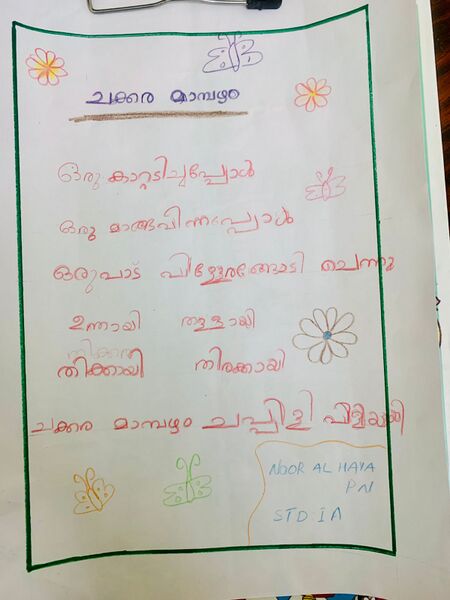 ചക്കര മാമ്പഴം
ഒരു കാറ്റടിച്ചപ്പോൾ
ഒരു മാങ്ങവീണപ്പോൾ
ഒരുപാട് പിള്ളേരങ്ങോടി ചെന്നു
ഉന്തായി തള്ളായി
തിക്കായി തിരക്കായി
ചക്കര മാമ്പഴം ചപ്പിളി പിളിയായി
NOOR AL HAYA
P N
STD : I A